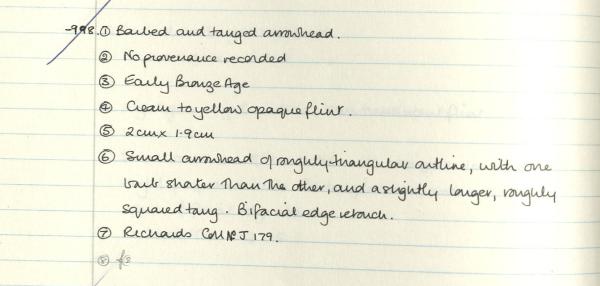 -998. ① Barbed and tanged arrowhead.
② No provenance recorded
③ Early Bronze Age
④ Cream to yellow opaque flint.
⑤ 2cm x 1.9cm
⑥ Small arrowhead of roughly-triangular outline, with one
barb shorter than the other, and a slightly longer, roughly
squared tang. Bifacial edge retouch.
⑦ Richards Coll Nº J 179.
⑧ f8